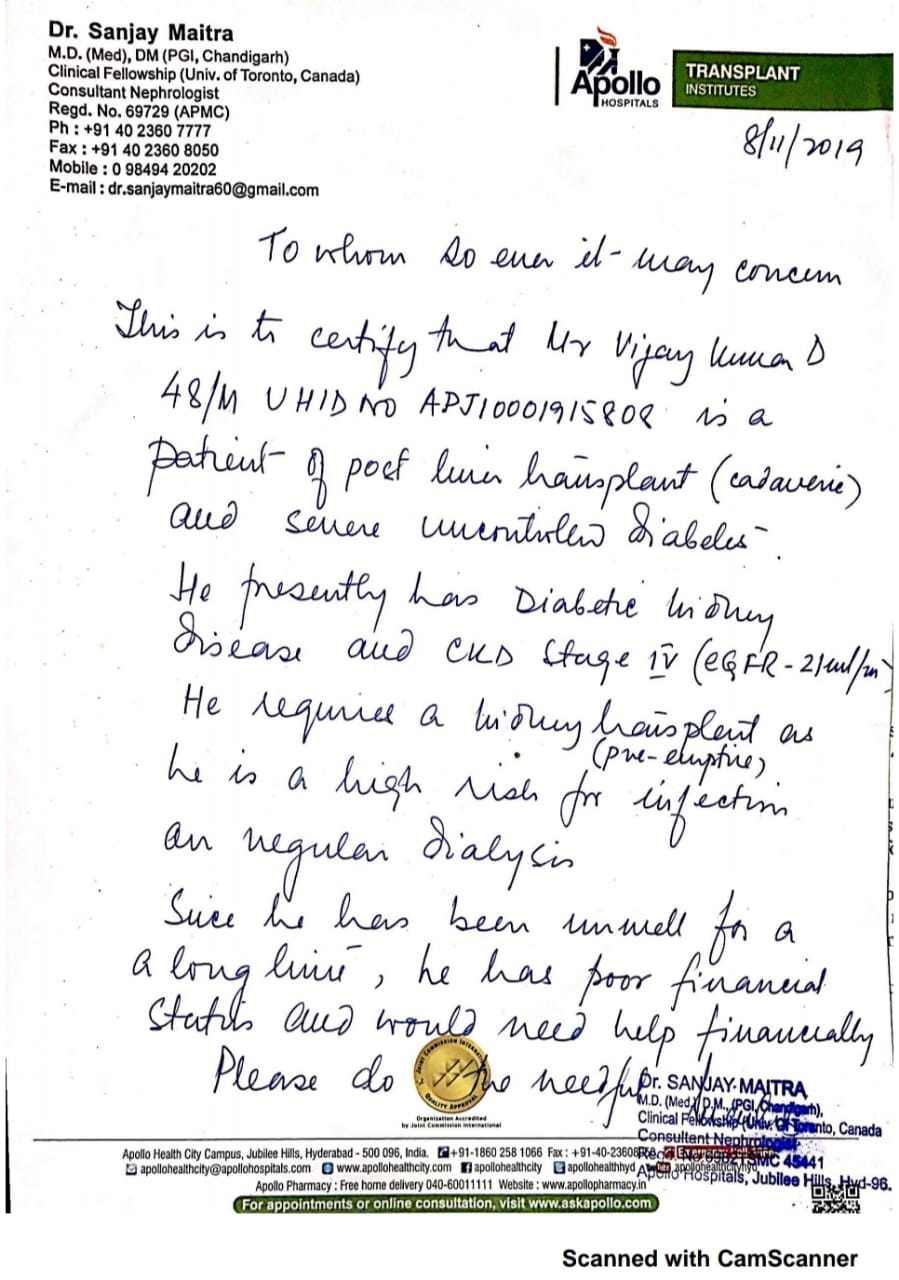 Dr. Sanjay Maitra
M.D. (Med), DM (PGI, Chandigarh)
Clinical Fellowship (Univ. of Toronto, Canada)
Consultant Nephrologist
Regd. No. 69729 (APMC)
Ph : +91 40 2360 7777
Fax : +91 40 2360 8050
Mobile : 0 98494 20202
E-mail : dr.sanjaymaitra60@gmail.com
Apollo
HOSPITALS
TRANSPLANT
INSTITUTES
8/11/2019
To whom so ever it may concern
This is to certify that Mr Vijay Kumar D
48/M UHID NO APJ10001915808 is a
patient of post liver transplant (cadaveric)
and severe uncontrolled diabetes.
He presently has Diabetic kidney
disease and CKD Stage IV (eGFR - 21ml/m)
He requires a kidney transplant as
(pre-emptive)
he is a high risk for infection
on regular dialysis
Since he has been unwell for a
a long time, he has poor financial
status and would need help financially
Please do the needful
JOINT COMMISSION INTERNATIONAL
QUALITY APPROVAL
Organization Accredited
by Joint Commission International
Dr. SANJAY MAITRA
M.D. (Med.) D.M., (PGI, Chandigarh),
Clinical Fellowship (Univ. Of Toronto, Canada
Consultant Nephrologist
TSMC 45441
Apollo Hospitals, Jubilee Hills, Hyd-96.
Apollo Health City Campus, Jubilee Hills, Hyderabad - 500 096, India. +91-1860 258 1066 Fax : +91-40-23608050
apollohealthcity@apollohospitals.com www.apollohealthcity.com apollohealthcity apollohealthhyd apollohealthcityhyd
Apollo Pharmacy : Free home delivery 040-60011111 Website : www.apollopharmacy.in
For appointments or online consultation, visit www.askapollo.com
Scanned with CamScanner